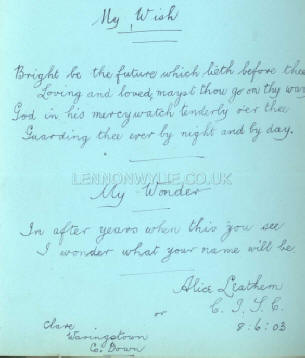 My Wish
Bright be the future which lieth before thee
Loving and loved, mayst thou go on thy way
God in his mercy watch tenderly o'er thee
Guarding thee ever by night and by day.
LENNONWYLIE.CO.UK
My Wonder
In after years when this you see
I wonder what your name will be
Alice Leathem
or C. I. T. C.
8:6:03
Clare
Waringstown
Co. Down